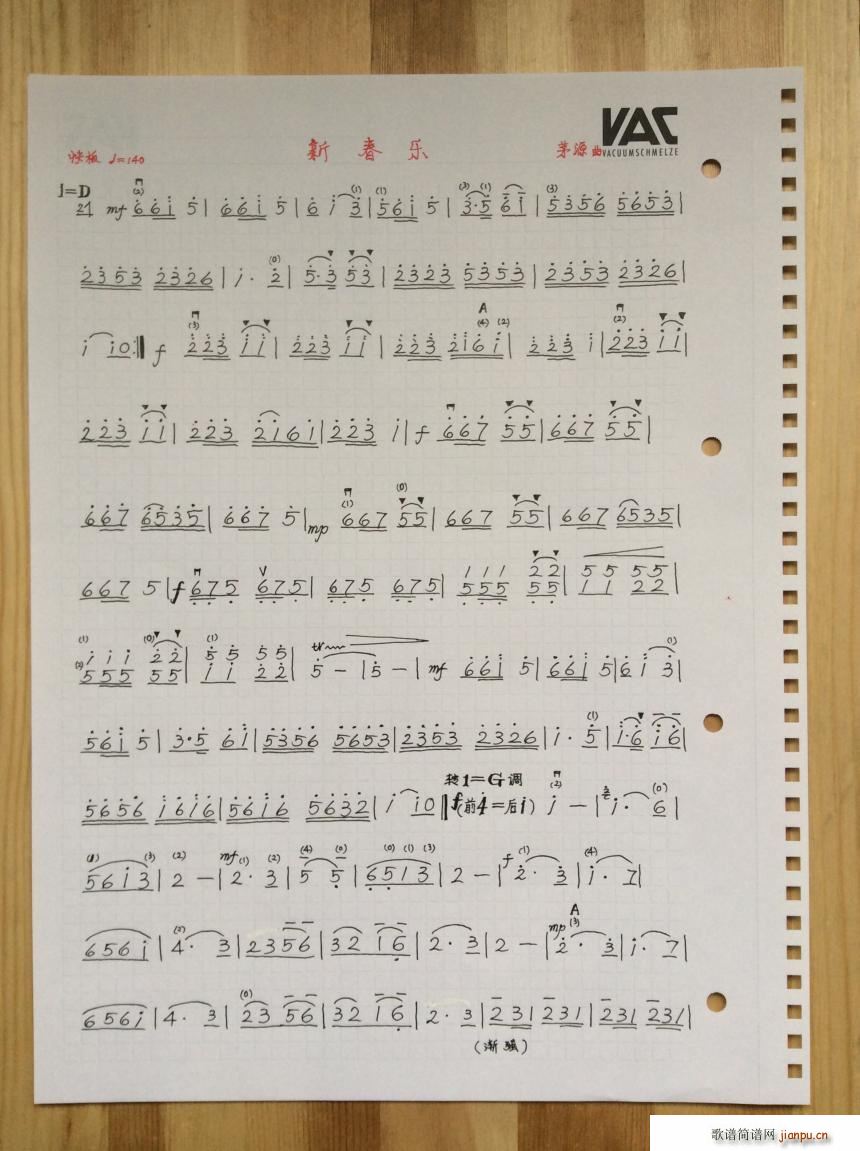 VAC
VACUUMSCHMELZE
快板 ♩=140 新春乐 茅源曲
1=D
2/4 mf 6 6 i 5 | 6 6 i 5 | 6 i 3 | 5 6 i 5 | 3·5 6 i | 5 3 5 6 5 6 5 3 |
2 3 5 3 2 3 2 6 | i· 2 | 5·3 5 3 | 2 3 2 3 5 3 5 3 | 2 3 5 3 2 3 2 6 |
i i 0 :‖ f 2 2 3 i i | 2 2 3 i i | 2 2 3 2 i 6 i | 2 2 3 i | 2 2 3 i i |
2 2 3 i i | 2 2 3 2 i 6 i | 2 2 3 i | f 6 6 7 5 5 | 6 6 7 5 5 |
6 6 7 6 5 3 5 | 6 6 7 5 | mp 6 6 7 5 5 | 6 6 7 5 5 | 6 6 7 6 5 3 5 |
6 6 7 5 | f 6 7 5 6 7 5 | 6 7 5 6 7 5 | 1 1 1 2 2 | 5 5 5 5 |
5 5 5 5 5 1 1 2 2
i i i 2 2 | 5 5 5 5 | tr 5 – | 5 – | mf 6 6 i 5 | 6 6 i 5 | 6 i 3 |
5 5 5 5 5 i i 2 2
5 6 i 5 | 3·5 6 i | 5 3 5 6 5 6 5 3 | 2 3 5 3 2 3 2 6 | i· 5 | i·6 i 6 |
转1=G调
5 6 5 6 i 6 i 6 | 5 6 i 6 5 6 3 2 | i i 0 ‖ f (前4=后i) i – | i· 6 |
5 6 i 3 | 2 – | mf 2· 3 | 5 5 | 6 5 1 3 | 2 – | f 2· 3 | i· 7 |
6 5 6 i | 4· 3 | 2 3 5 6 | 3 2 1 6 | 2· 3 | 2 – | mp A 2· 3 | i· 7 |
6 5 6 i | 4· 3 | 2 3 5 6 | 3 2 1 6 | 2· 3 | 2 3 1 2 3 1 | 2 3 1 2 3 1 |
(渐强)
歌谱简谱网 jianpu.cn